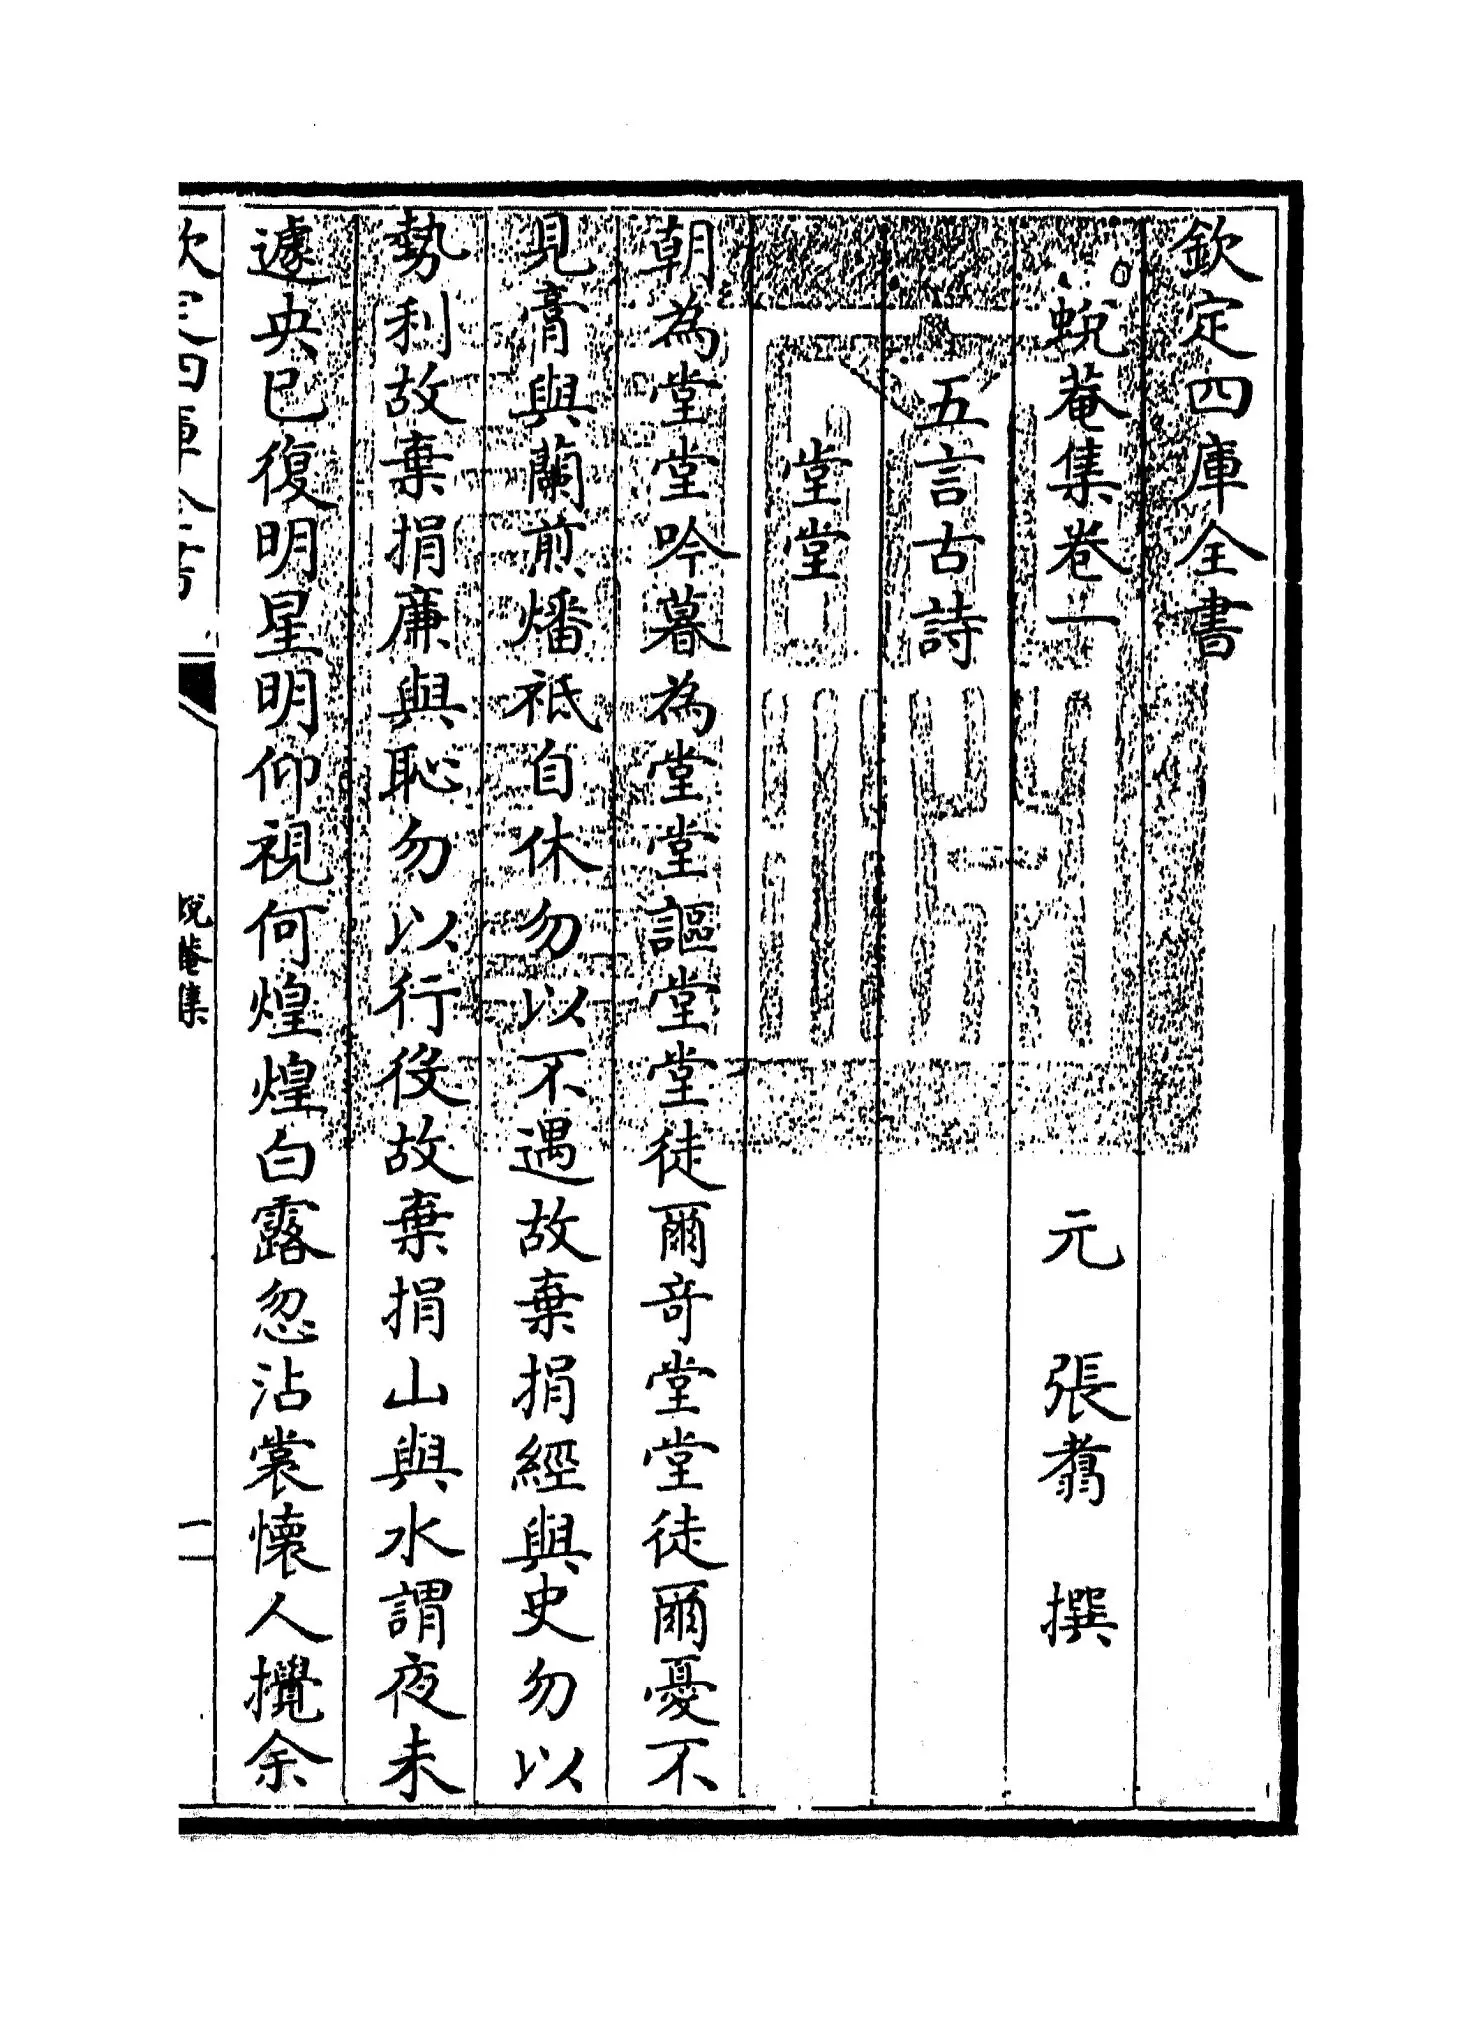 欽定四庫全書
蛻菴集卷一
元 張翥 撰
五言古詩
堂堂
朝為堂堂吟暮為堂堂謳堂堂徒爾竒堂堂徒爾憂不
見膏與蘭煎燔祗自休勿以不遇故棄捐經與史勿以
勢利故棄捐廉與恥勿以行役故棄捐山與水謂夜未
遽央已復明星明仰視何煌煌白露忽沾裳懷人攪余
欽定四庫全書
蛻菴集
一